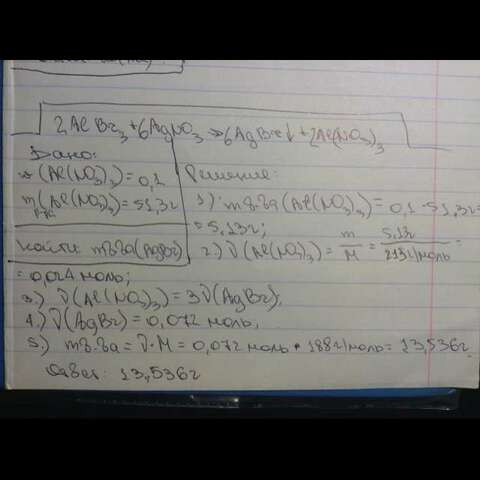 2AlBr₃ + 6AgNO₃ → 6AgBr↓ + 2Al(NO₃)₃
Дано:
w(Al(NO₃)₃) = 0,1
m р-ра (Al(NO₃)₃) = 51,3г
Найти: m в-ва (AgBr)
Решение:
1) m в-ва (Al(NO₃)₃) = 0,1 · 51,3г
= 5,13г;
2) ν(Al(NO₃)₃) = m/M = 5,13г/213г/моль =
= 0,024 моль;
3) ν(Al(NO₃)₃) = 3ν(AgBr);
4) ν(AgBr) = 0,072 моль;
5) m в-ва = ν · M = 0,072 моль * 188г/моль = 13,536г
Ответ: 13,536г